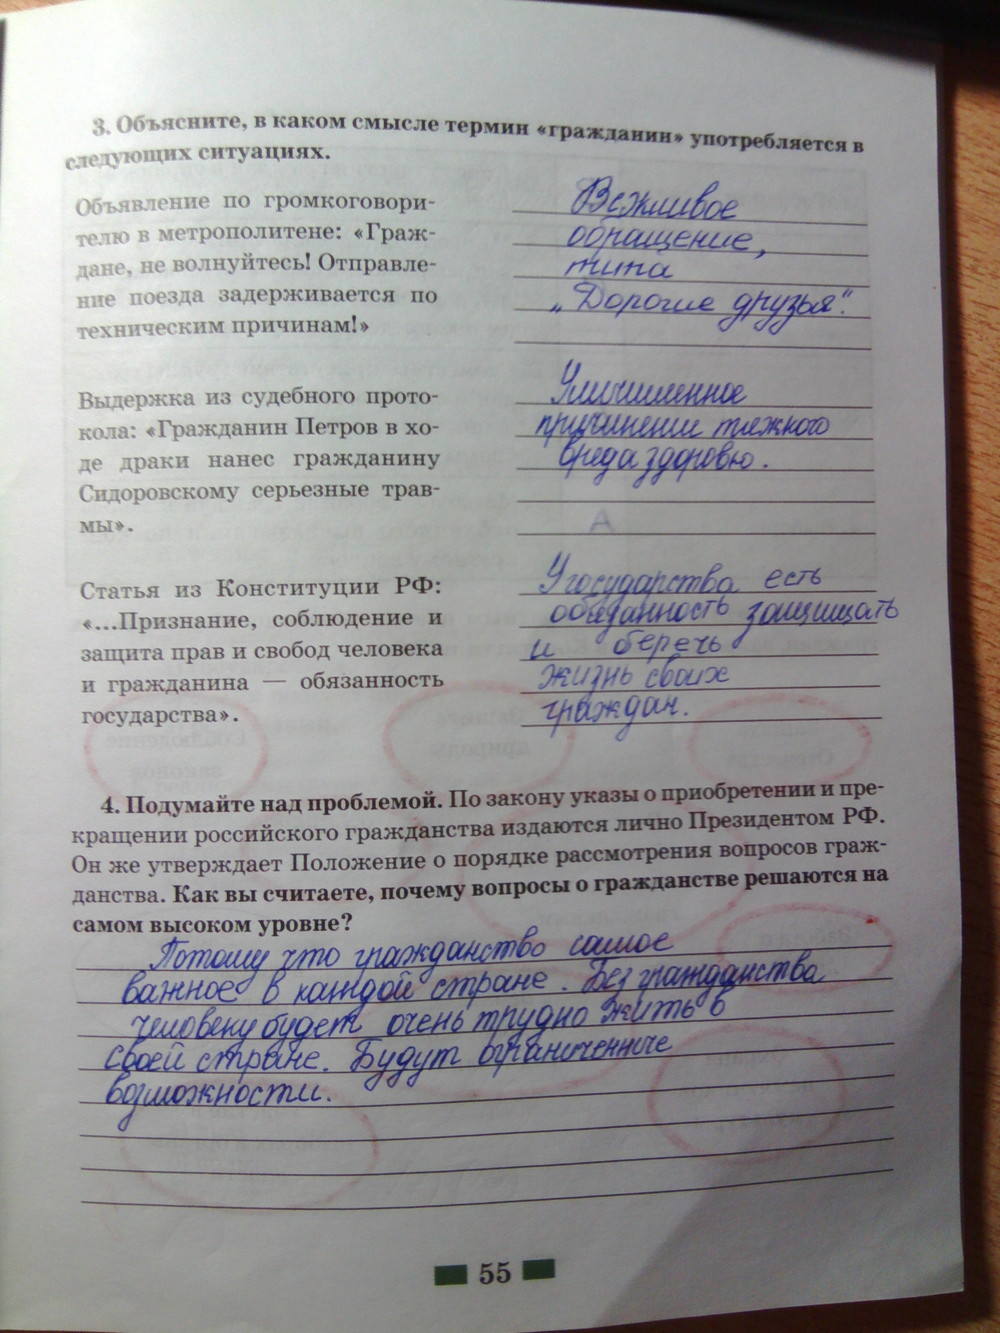 3. Объясните, в каком смысле термин «гражданин» употребляется в
следующих ситуациях.
Объявление по громкоговори-
телю в метрополитене: «Граж-
дане, не волнуйтесь! Отправле-
ние поезда задерживается по
техническим причинам!»
Вежливое
обращение,
типа
„Дорогие друзья".
Выдержка из судебного прото-
кола: «Гражданин Петров в хо-
де драки нанес гражданину
Сидоровскому серьезные трав-
мы».
Умышленное
причинение тяжкого
вреда здоровю.
А
Статья из Конституции РФ:
«...Признание, соблюдение и
защита прав и свобод человека
и гражданина — обязанность
государства».
У государства есть
обязанность защищать
и беречь
жизнь своих
граждан.
4. Подумайте над проблемой. По закону указы о приобретении и пре-
кращении российского гражданства издаются лично Президентом РФ.
Он же утверждает Положение о порядке рассмотрения вопросов граж-
данства. Как вы считаете, почему вопросы о гражданстве решаются на
самом высоком уровне?
Потому что гражданство самое
важное в каждой стране. Без гражданства
человеку будет очень трудно жить в
своей стране. Будут ограниченные
возможности.
55